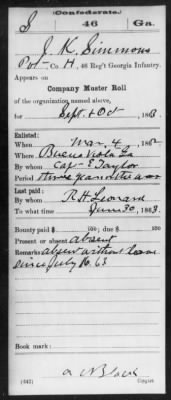 (Confederate.)
S 46 Ga.
J. K. Simmons
Pvt Co. H, 46 Reg't Georgia Infantry.
Appears on
Company Muster Roll
of the organization named above,
for Sept & Oct, 1863.
Enlisted:
When Mar. 4, 1862
Where Buena Vista Ga
By whom Capt E Taylor
Period three years or the war
Last paid:
By whom R. H. Leonard
To what time June 30, 1863.
Bounty paid $ 100; due $ 100
Present or absent absent
Remarks absent without leave
since July 16. 63
Book mark:
(642) Copyist